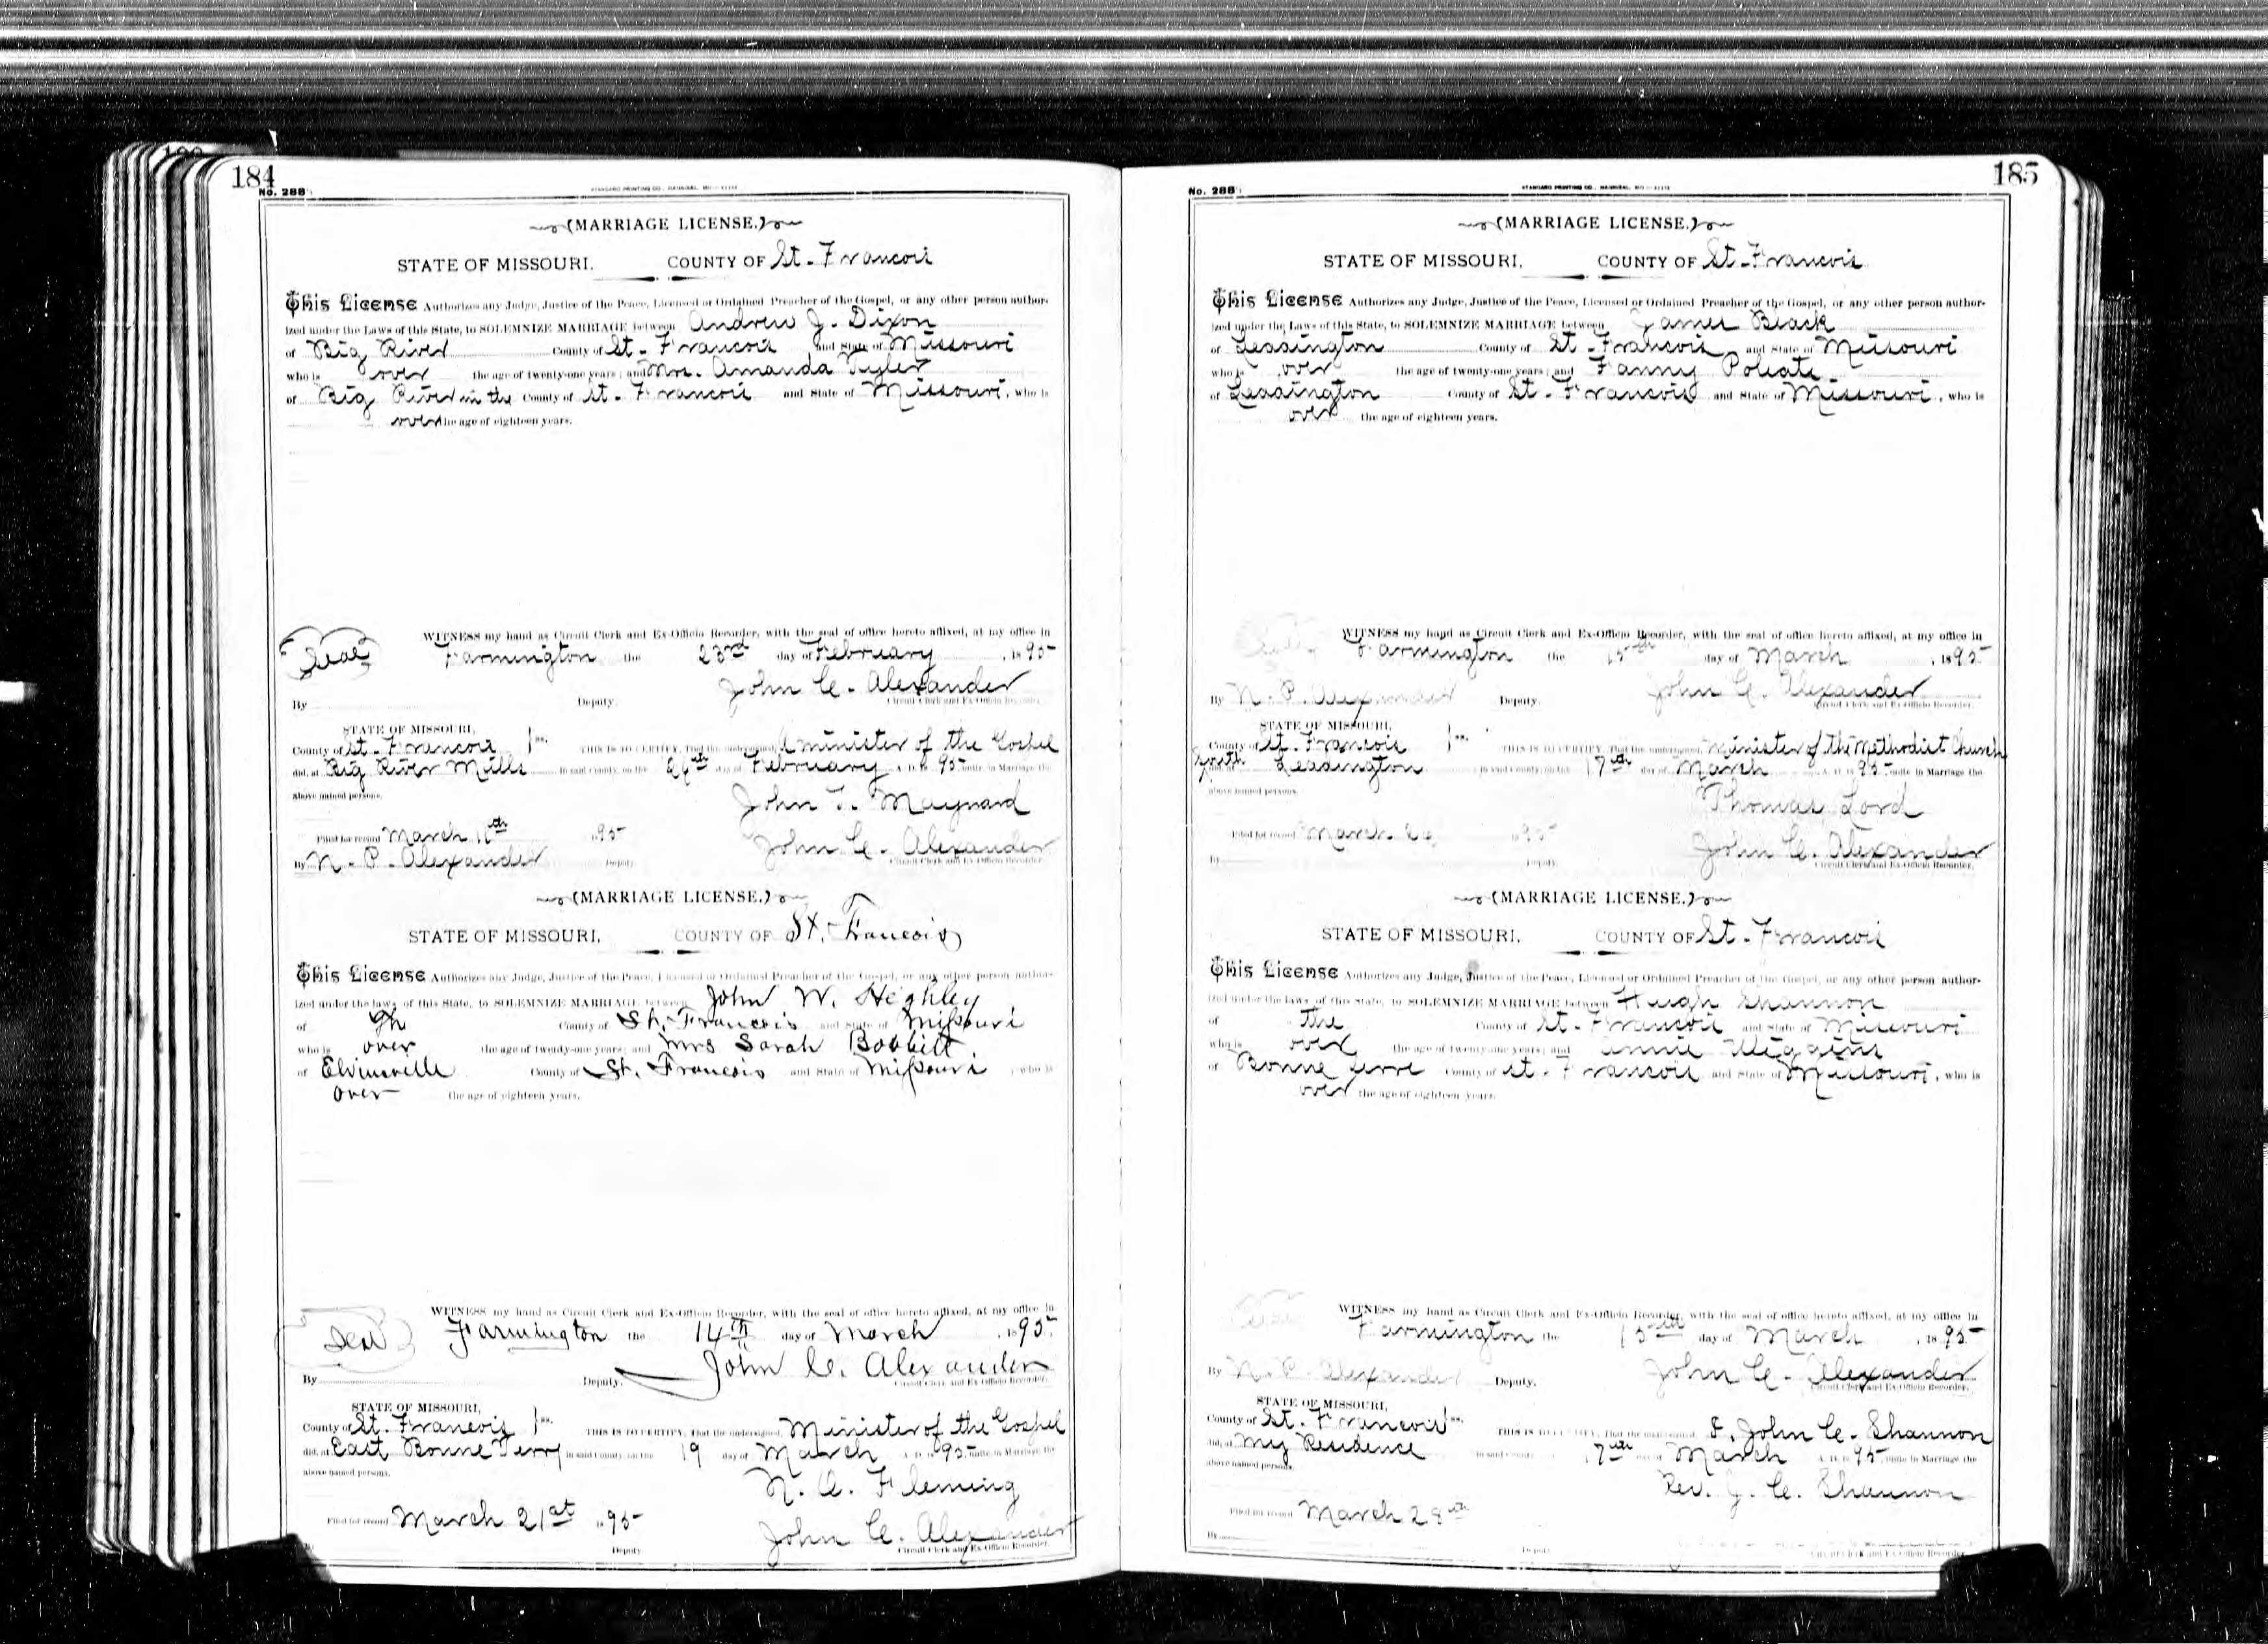 184
No. 288
STANDARD PRINTING CO., HANNIBAL, MO.
(MARRIAGE LICENSE.)
STATE OF MISSOURI. COUNTY OF St. Francois
This License Authorizes any Judge, Justice of the Peace, Licensed or Ordained Preacher of the Gospel, or any other person author-
ized under the Laws of this State, to SOLEMNIZE MARRIAGE between Andrew J. Dixon
of Big River County of St. Francois and State of Missouri
who is over the age of twenty-one years; and Mrs. Amanda
of Big River in the County of St. Francois and State of Missouri, who is
over the age of eighteen years.
WITNESS my hand as Circuit Clerk and Ex-Officio Recorder, with the seal of office hereto affixed, at my office in
Seal Farmington the 23rd day of February, 1895
John C. Alexander
By Deputy. Circuit Clerk and Ex-Officio Recorder.
STATE OF MISSOURI,
County of St. Francois ss. THIS IS TO CERTIFY, That the undersigned, A minister of the Gospel
did, at Big River Mills in said County, on the day of February A. D. 1895 unite in Marriage the
above named persons.
John T. Maynard
Filed for record March 1895 John C. Alexander
By N. P. Alexander Deputy. Circuit Clerk and Ex-Officio Recorder.
(MARRIAGE LICENSE.)
STATE OF MISSOURI, COUNTY OF St. Francois
This License Authorizes any Judge, Justice of the Peace, Licensed or Ordained Preacher of the Gospel, or any other person author-
ized under the laws of this State, to SOLEMNIZE MARRIAGE between John W. Highley
of County of St. Francois and State of Missouri
who is over the age of twenty-one years; and Mrs Sarah Bobbitt
of Elvinsville County of St. Francois and State of Missouri, who is
over the age of eighteen years.
WITNESS my hand as Circuit Clerk and Ex-Officio Recorder, with the seal of office hereto affixed, at my office in
Seal Farmington the 14th day of March, 1895
John C. Alexander
By Deputy. Circuit Clerk and Ex-Officio Recorder.
STATE OF MISSOURI,
County of St. Francois ss. THIS IS TO CERTIFY, That the undersigned, Minister of the Gospel
did, at East Bonne Terry in said County, on the 19 day of March A. D. 1895 unite in Marriage the
above named persons.
N. A. Fleming
Filed for record March 21st 1895 John C. Alexander
Deputy. Circuit Clerk and Ex-Officio Recorder.
185
No. 288
STANDARD PRINTING CO., HANNIBAL, MO.
(MARRIAGE LICENSE.)
STATE OF MISSOURI, COUNTY OF St. Francois
This License Authorizes any Judge, Justice of the Peace, Licensed or Ordained Preacher of the Gospel, or any other person author-
ized under the Laws of this State, to SOLEMNIZE MARRIAGE between James Black
of Leadington County of St. Francois and State of Missouri
who is over the age of twenty-one years; and Fanny Poleate
of Leadington County of St. Francois and State of Missouri, who is
over the age of eighteen years.
WITNESS my hand as Circuit Clerk and Ex-Officio Recorder, with the seal of office hereto affixed, at my office in
Seal Farmington the 15th day of March, 1895
By N. P. Alexander Deputy. John C. Alexander
Circuit Clerk and Ex-Officio Recorder.
STATE OF MISSOURI,
County of St. Francois ss. THIS IS TO CERTIFY, That the undersigned, Minister of the Methodist Church
South did, at Leadington in said County, on the 17th day of March A. D. 1895 unite in Marriage the
above named persons.
Thomas Lord
Filed for record March 1895 John C. Alexander
By Deputy. Circuit Clerk and Ex-Officio Recorder.
(MARRIAGE LICENSE.)
STATE OF MISSOURI, COUNTY OF St. Francois
This License Authorizes any Judge, Justice of the Peace, Licensed or Ordained Preacher of the Gospel, or any other person author-
ized under the laws of this State, to SOLEMNIZE MARRIAGE between Hugh Shannon
of the County of St. Francois and State of Missouri
who is over the age of twenty-one years; and Annie Wiggins
of Bonne Terre County of St. Francois and State of Missouri, who is
over the age of eighteen years.
WITNESS my hand as Circuit Clerk and Ex-Officio Recorder, with the seal of office hereto affixed, at my office in
Seal Farmington the 15th day of March, 1895
By N. P. Alexander Deputy. John C. Alexander
Circuit Clerk and Ex-Officio Recorder.
STATE OF MISSOURI,
County of St. Francois ss. THIS IS TO CERTIFY, That the undersigned, I, John C. Shannon
did, at My Residence in said County 17th day of March A. D. 1895 unite in Marriage the
above named persons.
Rev. J. C. Shannon
Filed for record March 28th
By Deputy. Circuit Clerk and Ex-Officio Recorder.